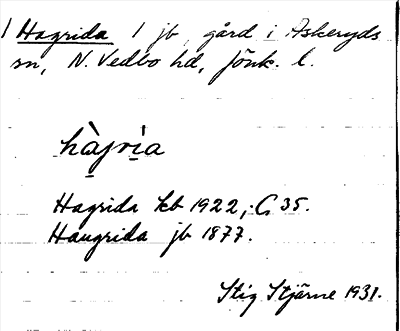 1 Hagrida 1 jb, gård i Askeryds
sn, N. Vedbo hd, Jönk. l.
Hagrida kb 1922, G 35.
Haugrida jb 1877.
Stig Stjärne 1931.